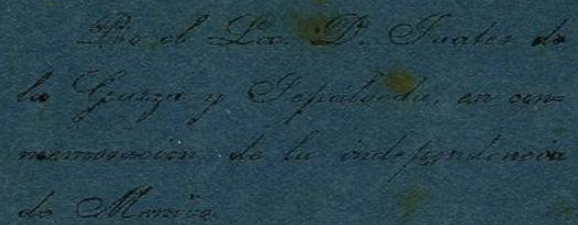 Por el Lic. D. Juates de
la Garza y Sepulveda, en con=
memoracion de la independencia
de Mexico